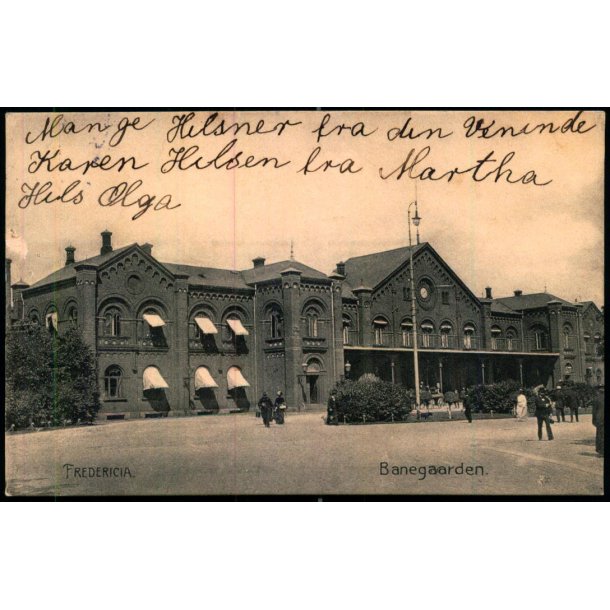 Mange Hilsner fra din Veninde
Karen Hilsen fra Martha
Hils Olga
FREDERICIA.
Banegaarden.